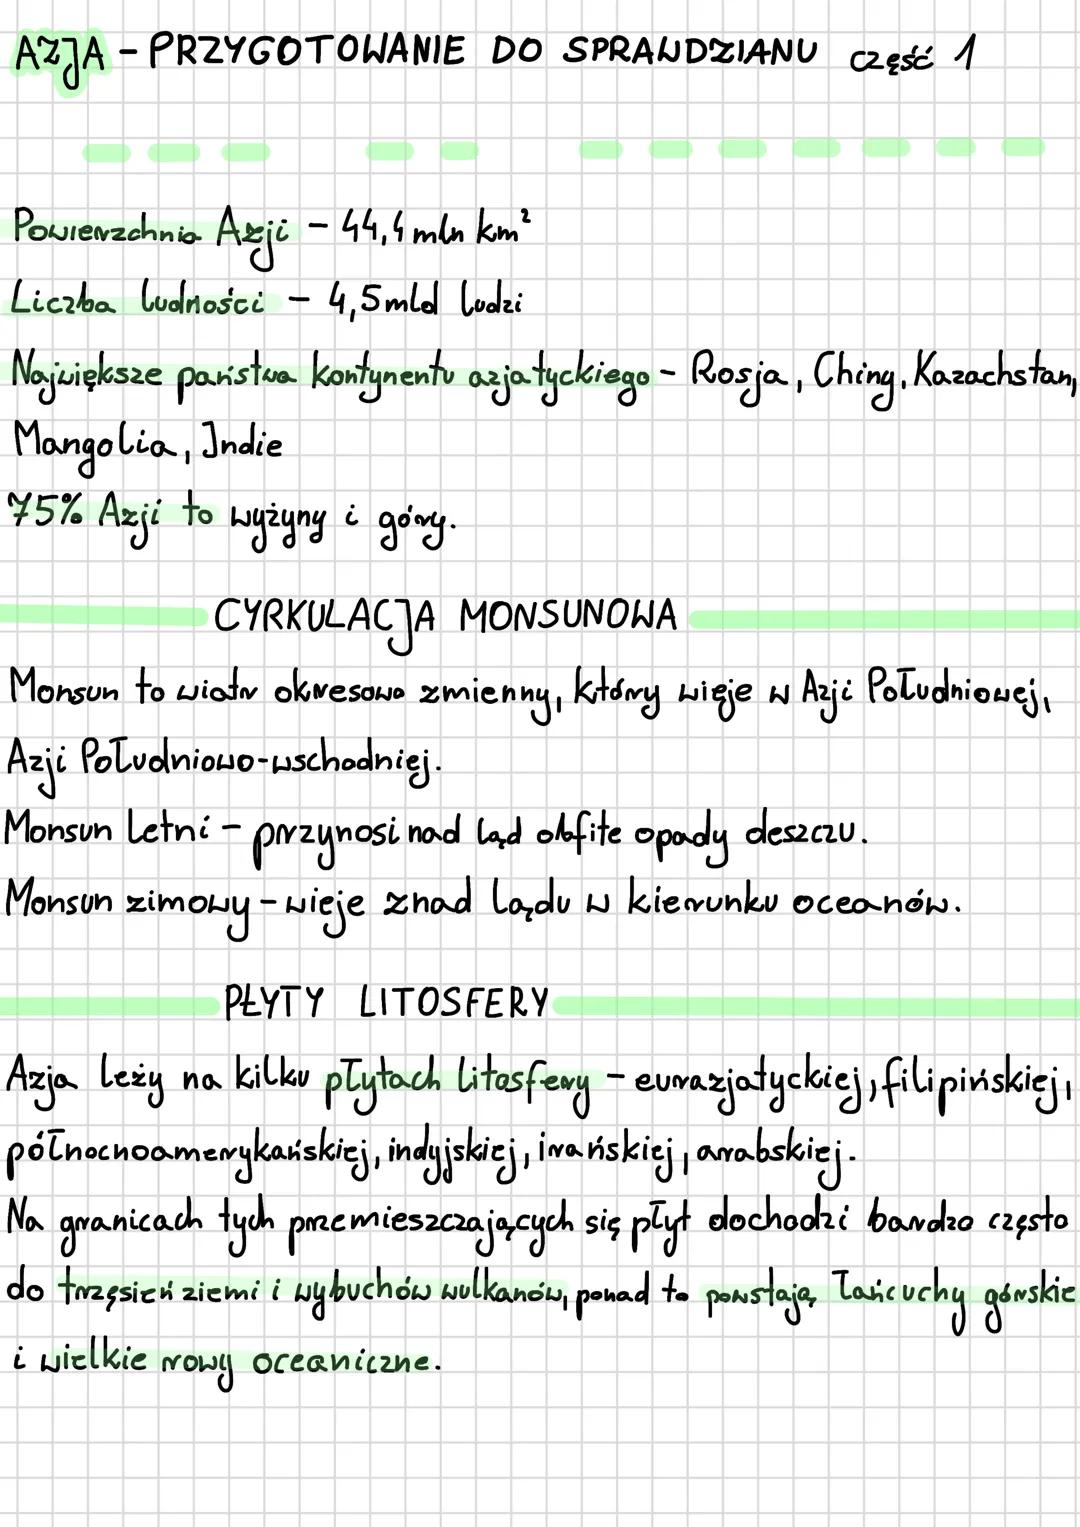 AZJA - PRZYGOTOWANIE DO SPRAWDZIANU część 1
Powierzchnia Azji - 44,4 mln km²
Liczba ludności - 4,5 mld ludzi
Największe państwa kontynentu azjatyckiego - Rosja, Chiny, Kazachstan,
Mangolia, Indie
75% Azji to wyżyny i góry.
CYRKULACJA MONSUNOWA
Monsun to wiatr okresowo zmienny, który wieje w Azji Południowej,
Azji Południowo-wschodniej.
Monsun letni - przynosi nad ląd obfite opady deszczu.
Monsun zimowy - wieje znad lądu w kierunku oceanów.
PŁYTY LITOSFERY
Azja leży na kilku płytach litosfery - eurazjatyckiej, filipińskiej,
północnoamerykańskiej, indyjskiej, irańskiej, arabskiej.
Na granicach tych przemieszczających się płyt dochodzi bardzo często
do trzęsień ziemi i wybuchów wulkanów, ponad to powstają łańcuchy górskie
i wielkie rowy oceaniczne.